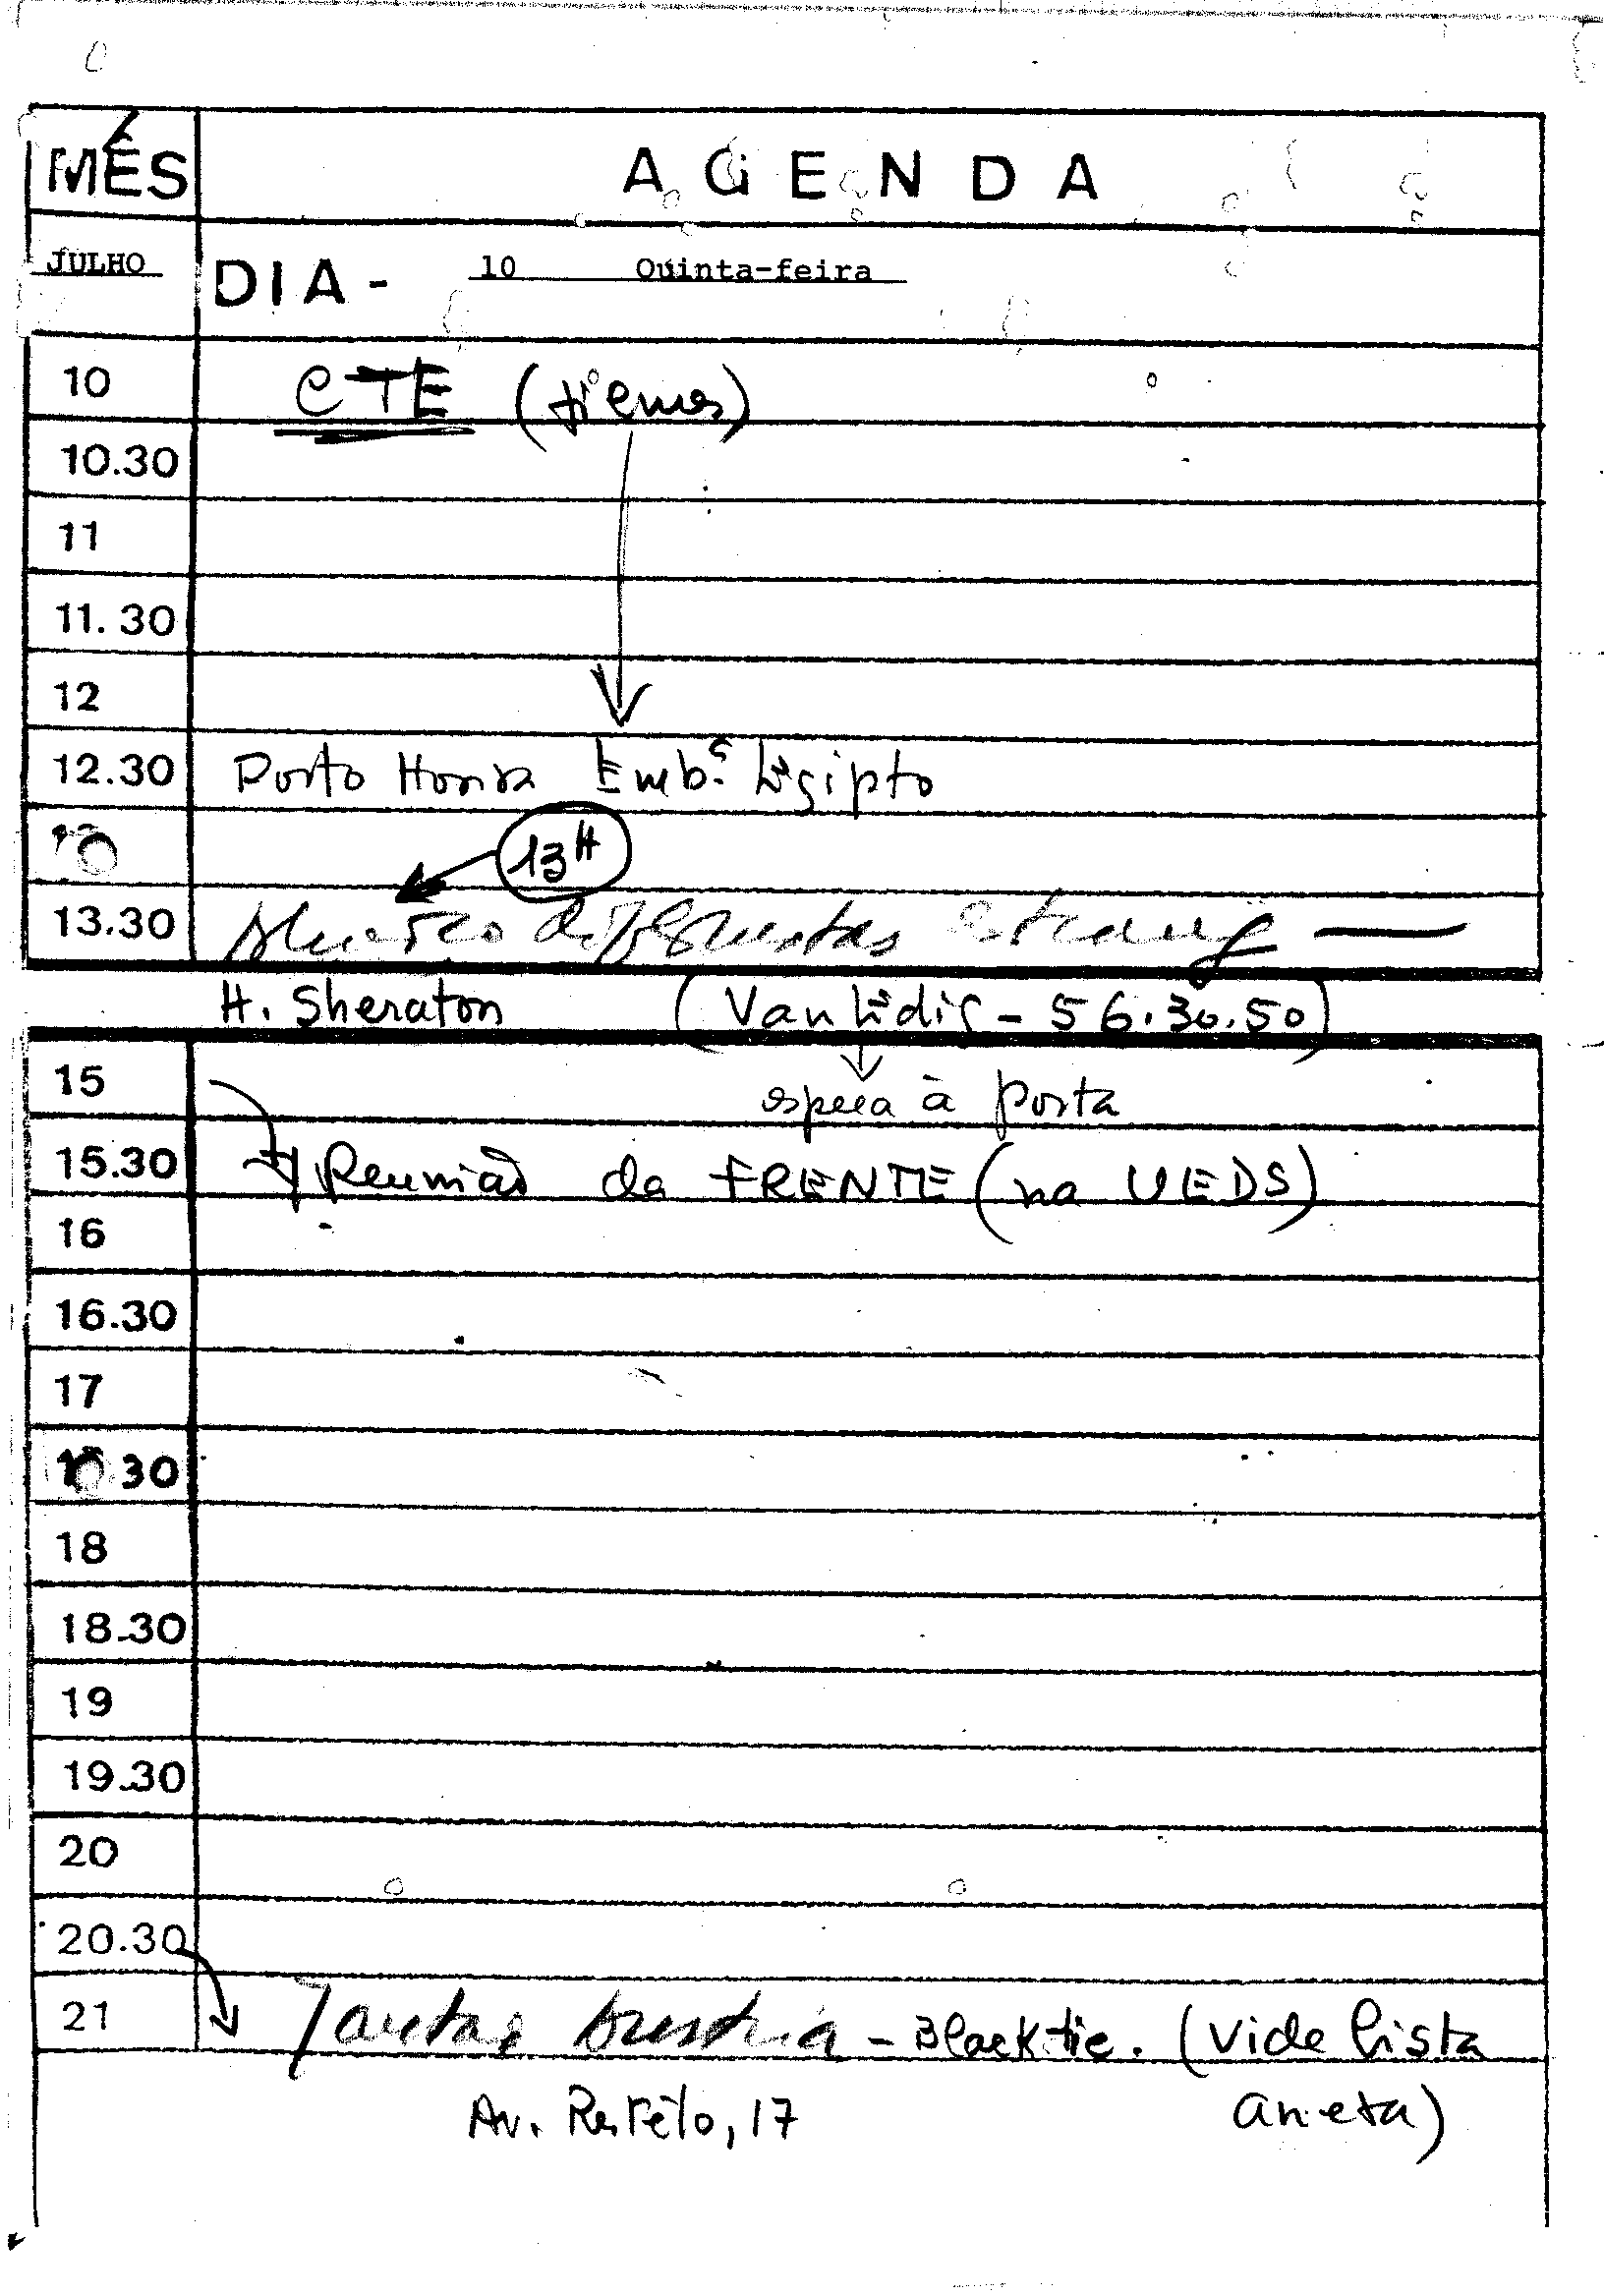 MÊS A G E N D A
JULHO DIA - 10 Quinta-feira
10 CTE (
10.30
11
11.30
12
12.30 Porto Honra Emb.ª Egipto
13H
13.30 Almoço Jornalistas estrang
H. Sheraton (Van Lidig - 56.30.50)
15
espera à porta
15.30 Reunião da FRENTE (na UEDS)
16
16.30
17
17.30
18
18.30
19
19.30
20
20.30
21 Jantar Austria - Black tie. (vide lista
Av. Restêlo, 17 anexa)